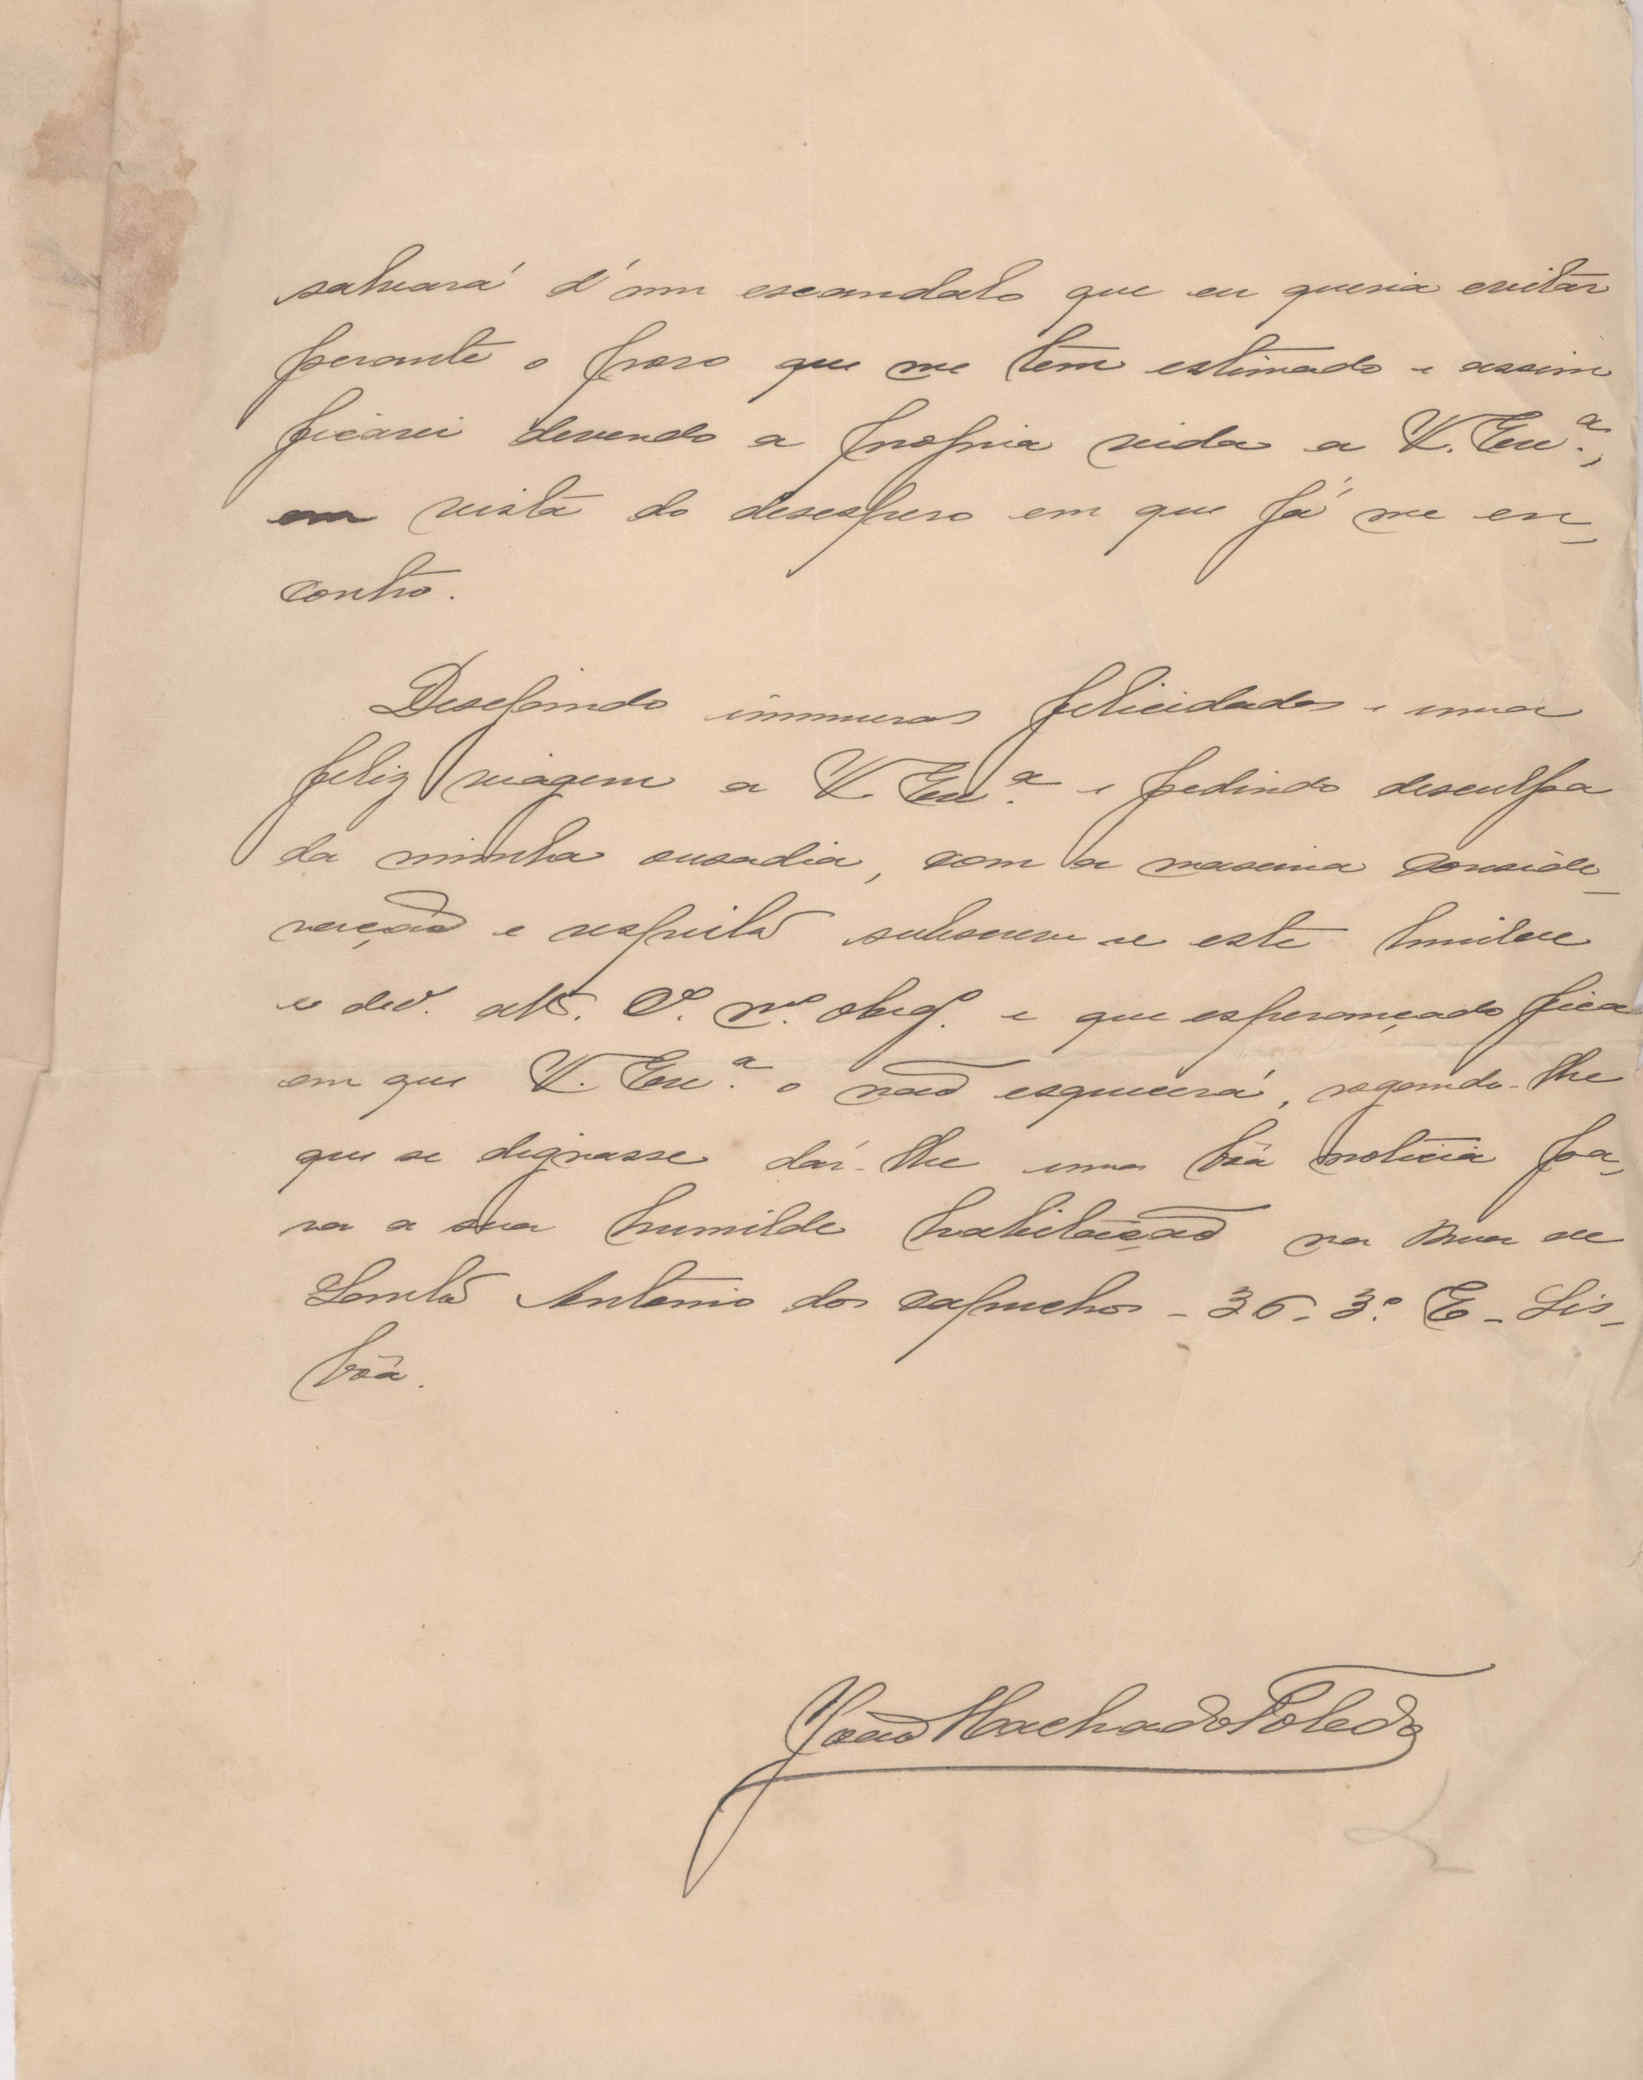 salvará d'um escandalo que eu queria evitar
perante o povo que me tem estimado e assim
ficarei devendo a propria vida a V. Exª.,
em vista do desespero em que já me en-
contro.
Desejando inumeras felicidades e uma
feliz viagem a V. Exª. e pedindo desculpa
da minha ousadia, com a maxima conside-
ração e respeito subscreve se este humilde
e devº. attº. Vº. mº. obrgº. e que esperançado fica
em que V. Exª. o não esquecerá, rogando-lhe
que se dignasse dar-lhe uma bôa noticia pa-
ra a sua humilde habitação na Rua de
Santo Antonio dos Capuchos - 36 - 3º. E - Lis-
bôa.
João Machado Toledo